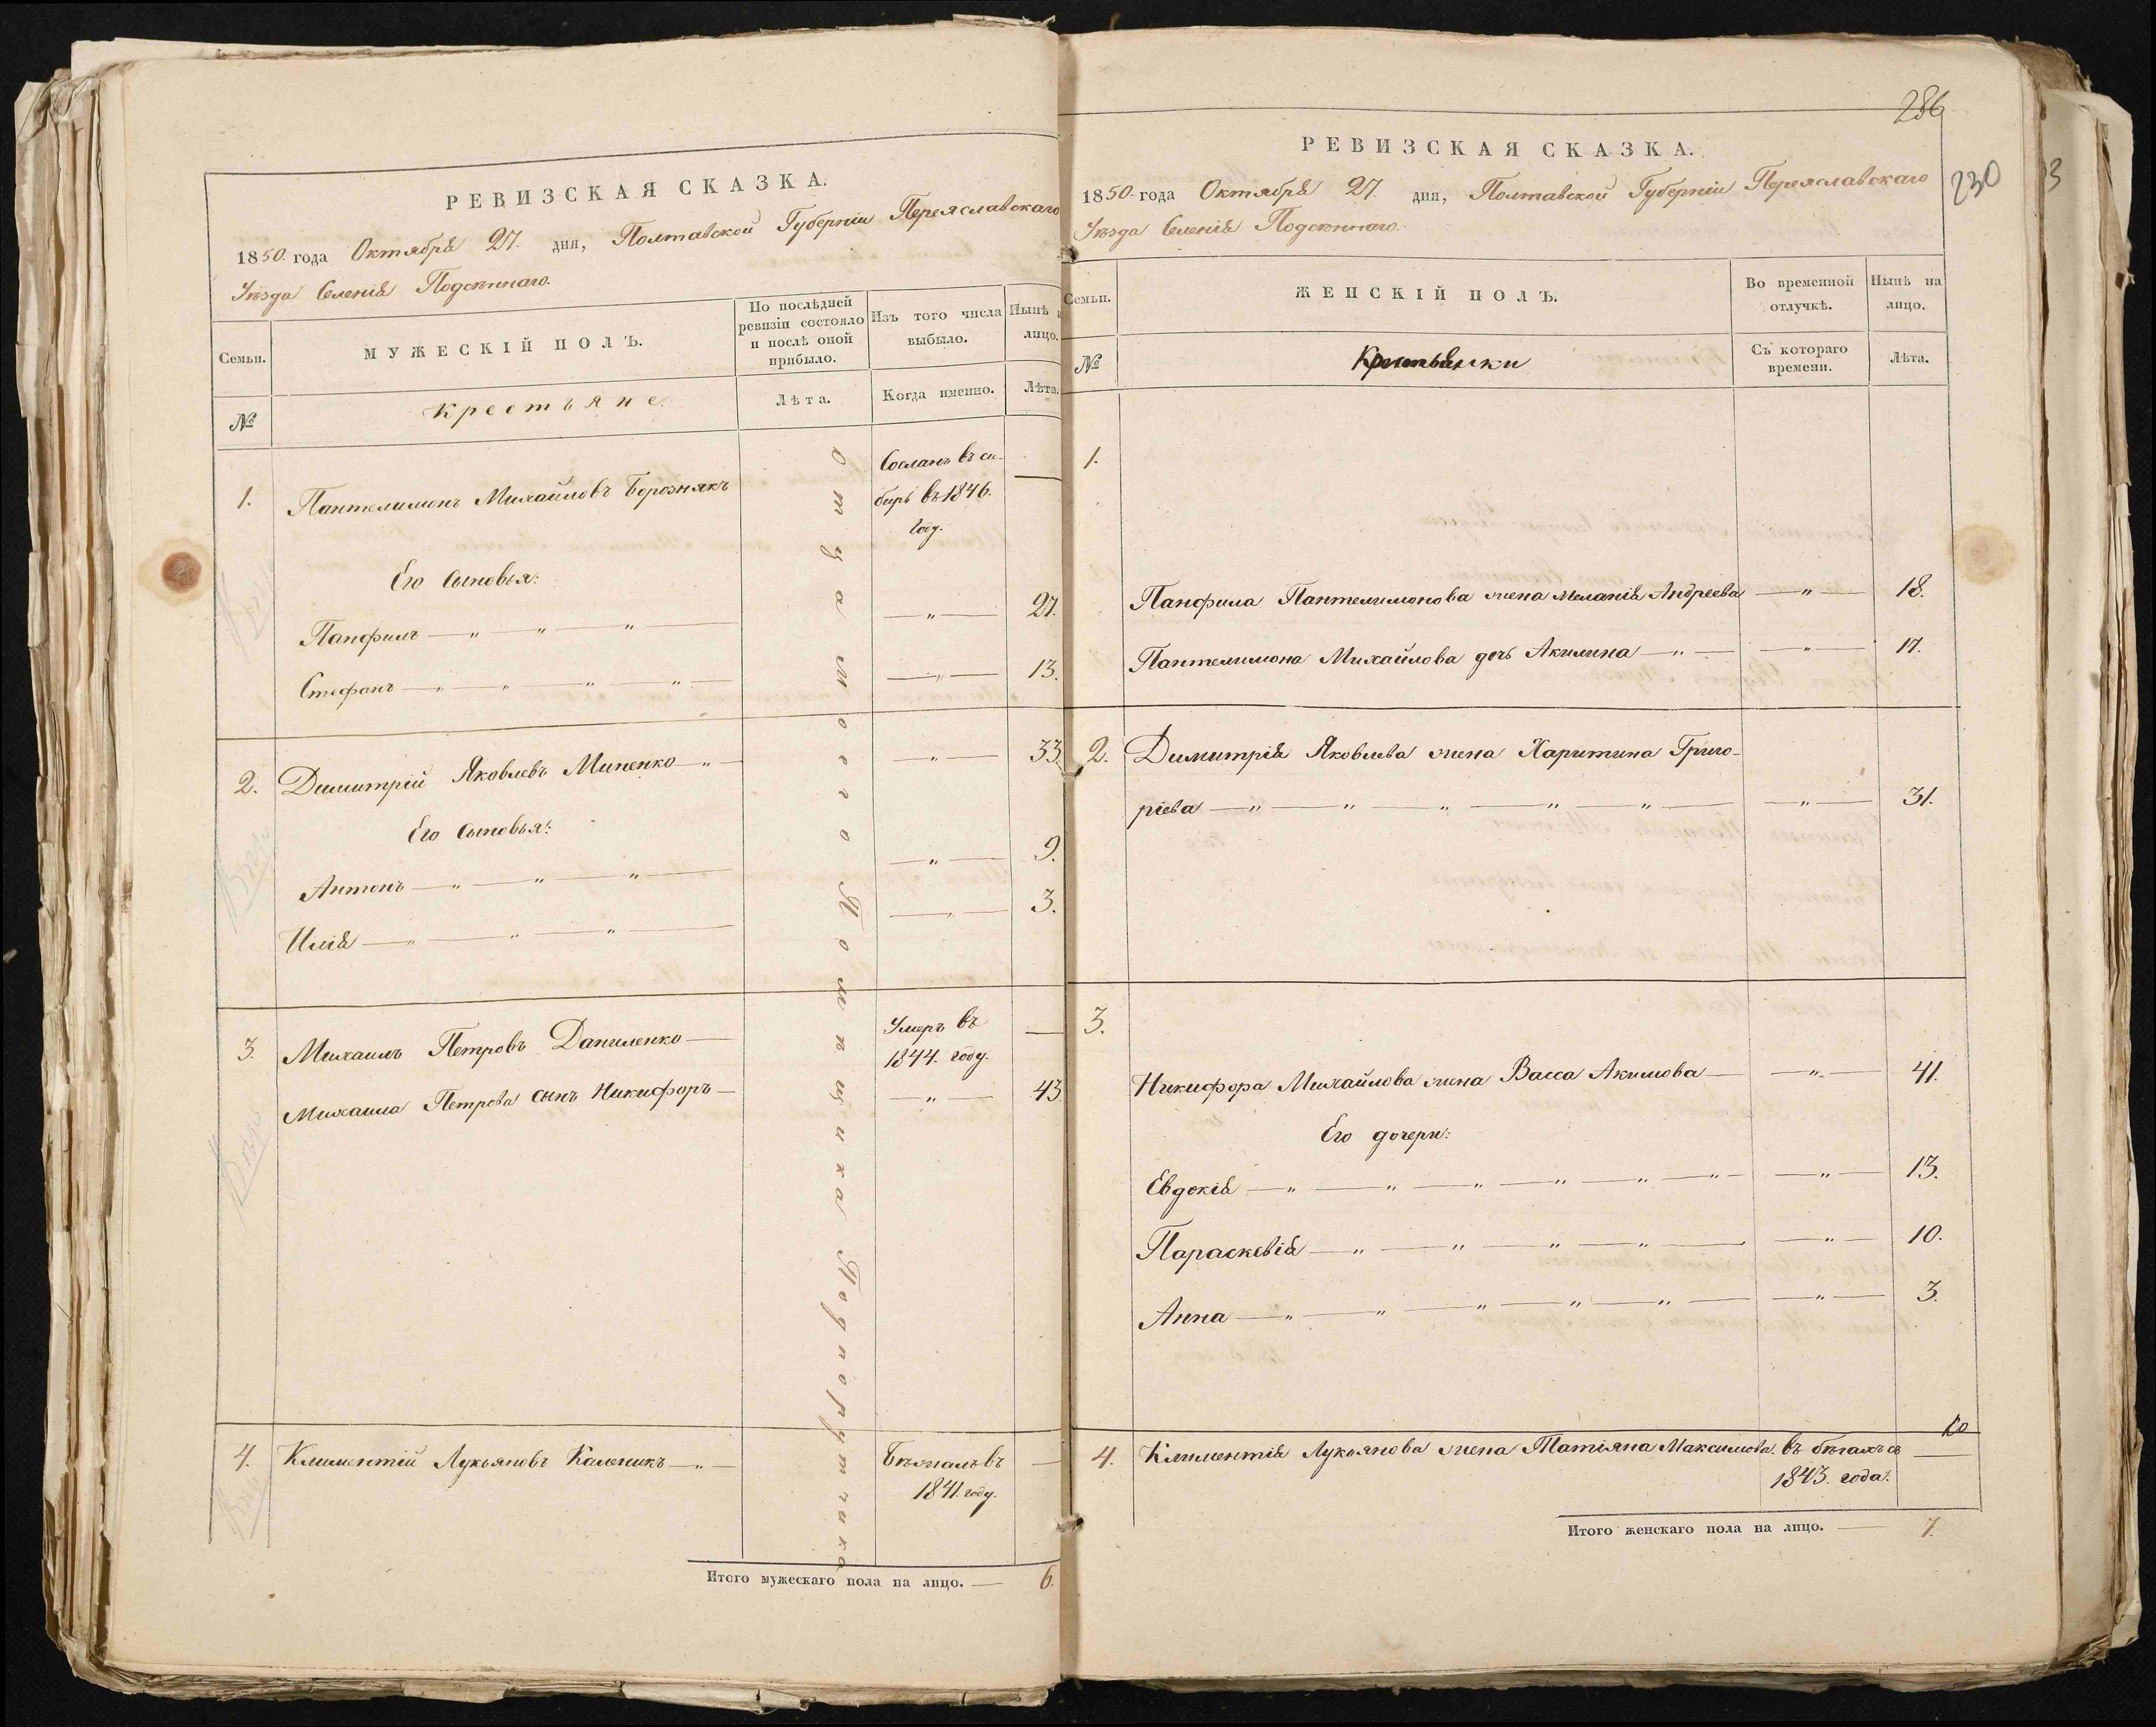 РЕВИЗСКАЯ СКАЗКА.
1850. года Октября 27. дня, Полтавской Губерніи Переяславскаго
Уѣзда Селенія Подсѣннаго.
Семьи.
МУЖЕСКІЙ ПОЛЪ.
По послѣдней ревизіи состояло и послѣ оной прибыло.
Изъ того числа выбыло.
Нынѣ
лицо.
№
Крестьяне.
Лѣта.
Когда именно.
Лѣта.
От у а
омѣщика Подпоручика
1. Пантелимонъ Михайловъ Борознякъ Сосланъ въ си-
бирь въ 1846.
году. —
Его Сыновья:
Панфилъ — " — " — " — — " — 27.
Стефанъ — " — " — " — " — — " — 13.
2. Димитрій Яковлевъ Миненко — " — — " — 33.
Его Сыновья:
Антонъ — " — " — " — — " — 9.
Илія — " — " — " — — " — 3.
3. Михаилъ Петровъ Даниленко — Умеръ въ
1844. году. —
Михаила Петрова сынъ Никифоръ — — " — 43.
4. Климентій Лукьяновъ Каленикъ — " — Бѣжалъ въ
1841. году. —
Итого мужескаго пола на лицо. — 6.
286
230
3
РЕВИЗСКАЯ СКАЗКА.
1850. года Октября 27. дня, Полтавской Губерніи Переяславскаго
Уѣзда Селенія Подсѣннаго.
Семьи.
ЖЕНСКІЙ ПОЛЪ.
Во временной отлучкѣ.
Нынѣ на лицо.
№
Крестьянки
Съ котораго времени.
Лѣта.
1.
Панфила Пантелимонова жена Меланія Андреева — " — 18.
Пантелимона Михайлова дочь Акилина — " — — " — 17.
2. Димитрія Яковлева жена Харитина Григо-
ріева — " — " — " — " — " — — " — 31.
3.
Никифора Михайлова жена Васса Акимова — — " — 41.
Его дочери:
Евдокія — " — " — " — " — " — " — — " — 13.
Параскевія — " — " — " — " — — " — 10.
Анна — " — " — " — " — " — — " — 3.
4. Климентія Лукьянова жена Татіяна Максимова. въ бѣгахъ съ
1843. года. —
Итого женскаго пола на лицо. — 7.